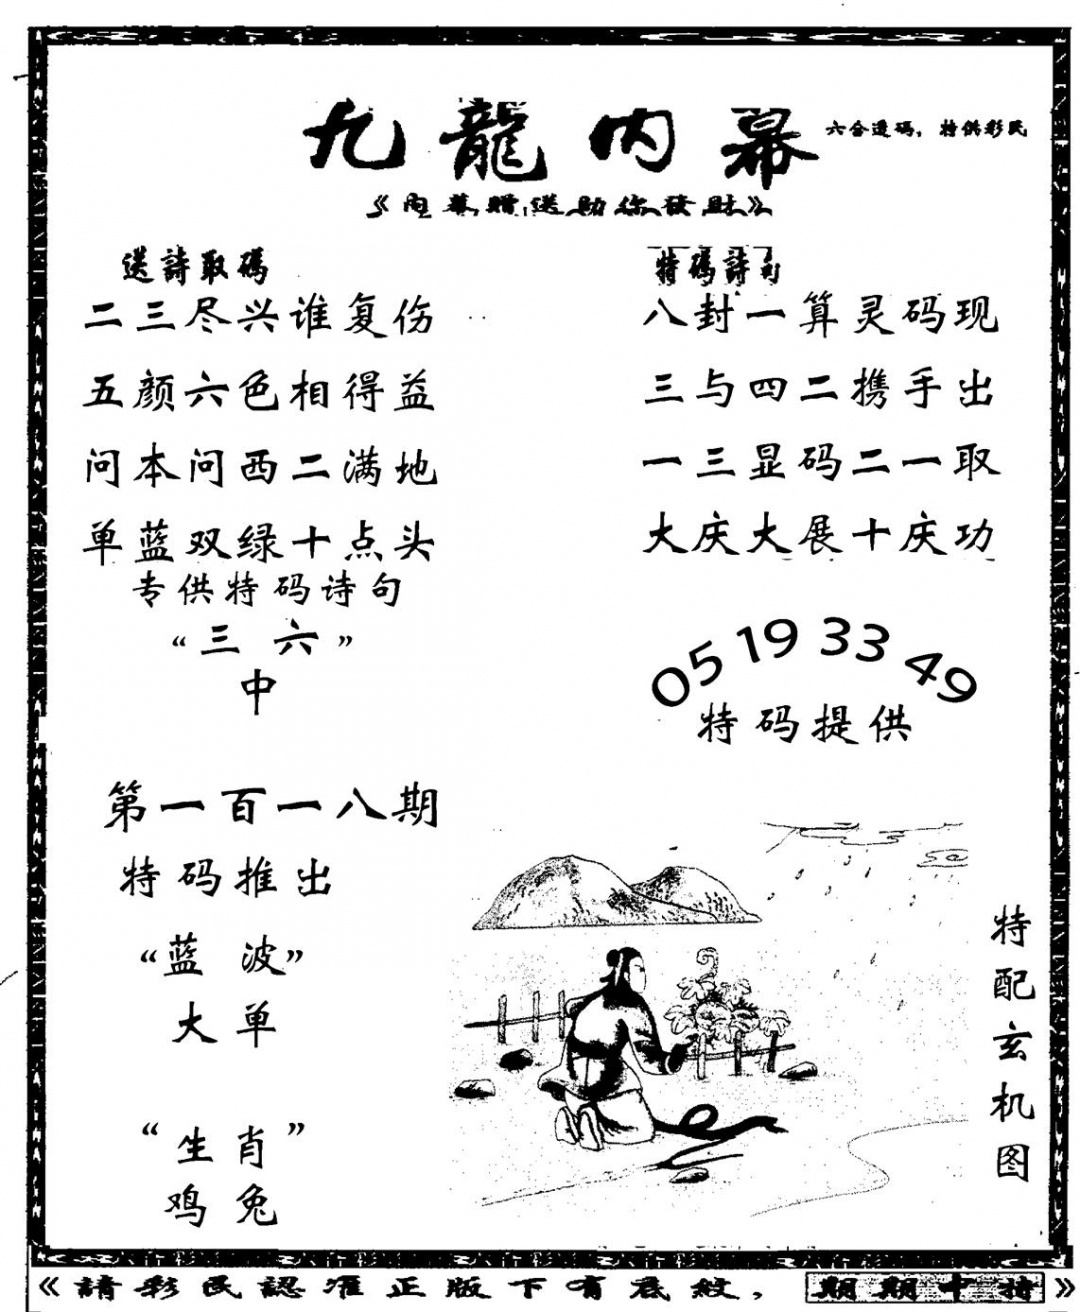 九龍內幕
六合透码，特供彩民
《內幕贈送助你發財》
送詩取碼
二三尽兴谁复伤
五颜六色相得益
问本问西二满地
单蓝双绿十点头
专供特码诗句
“三六”
中
特碼詩句
八封一算灵码现
三与四二携手出
一三显码二一取
大庆大展十庆功
05 19 33 49
特码提供
第一百一八期
特码推出
“蓝波”
大单
“生肖”
鸡兔
特配玄机图
《請彩民認准正版下有底紋，期期中特》